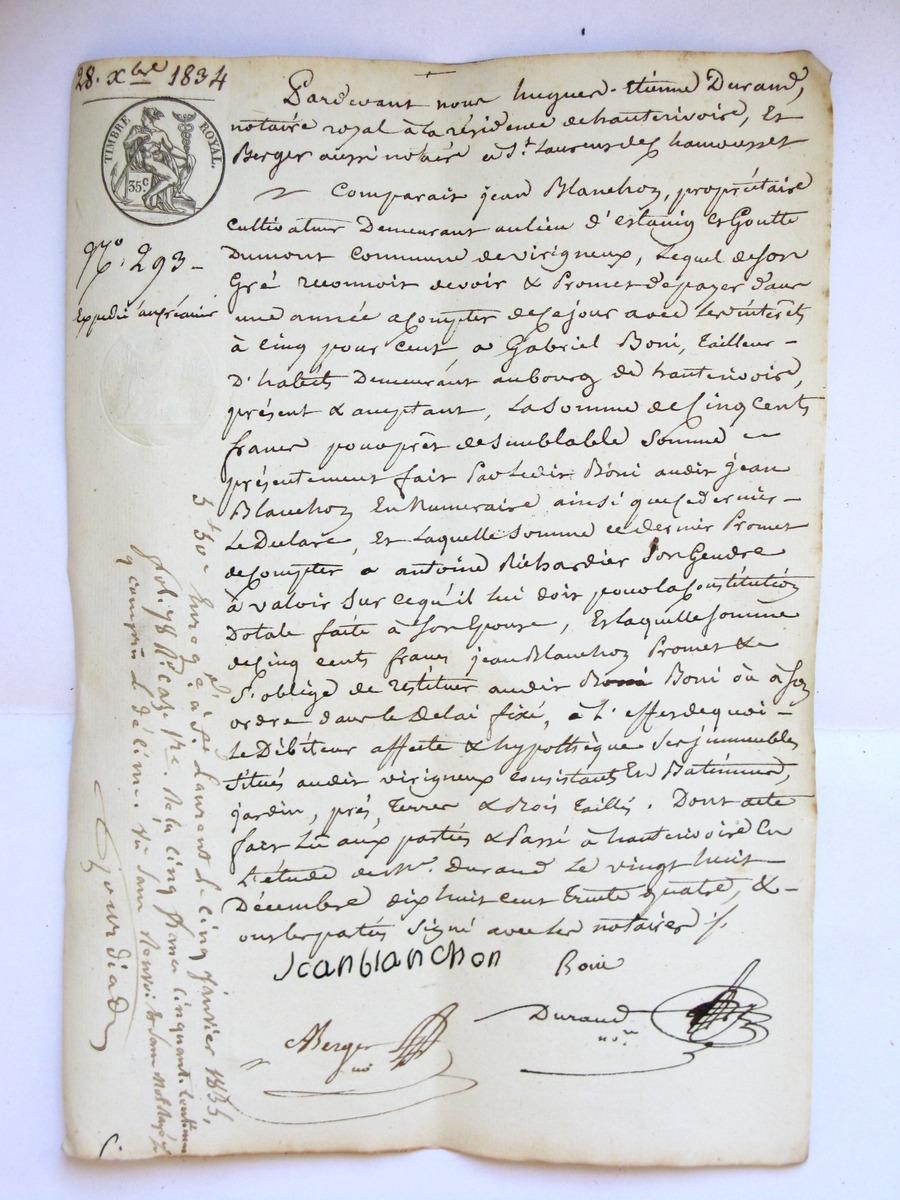 28. xbre 1834
TIMBRE ROYAL.
35.c
No. 293 -
Expédié au créancier
Pardevant nous hugues-étienne Durand,
notaire royal à la résidence de hauterivoire, Et
Berger aussi notaire à St. Laurent de chamousset
Comparait jean Blanchon, propriétaire
cultivateur Demeurant au lieu d'estanig Et Goutte
Dumont Commune de virigneux, Lequel de son
Gré reconnoit devoir & Promet de payer dans
une année à Compter de Ce jour avec Les intérêts
à Cinq pour Cent, a Gabriel Boni, Tailleur -
D'habits Demeurant au bourg de hauterivoire,
présent & acceptant, La somme de Cinq Cents
francs pour prêt de semblable Somme
présentement fait Par Ledit Boni audit jean
Blanchon En Numéraire ainsi que Ce dernier -
Le Déclare, Et Laquelle Somme ce dernier Promet
de Compter a antoine Richardier Son Gendre
à valoir Sur ce qu'il lui doit pour la Constitution
Dotale faite à Son Epouse, Et laquelle Somme
de Cinq cents francs jean Blanchon Promet &
S'oblige de restituer audit Boni ou à Son
ordre dans le Délai fixé, à L'effet de quoi -
Le Débiteur affecte & hypothèque Ses immeubles
Situés audit virigneux consistants En Batiments,
jardin, prés, Terres & Bois Taillis. Dont acte
fait Lû aux parties & Passé à hauterivoire En
L'étude de Me. Durand Le vingt huit
Décembre dix huit cent trente quatre, & -
ont les parties Signé avec les notaires ./.
Jeanblanchon
Boni
Durand
nore.
Berger
no
Enregé à St. Laurent le cinq janvier 1835,
fol. 78 Ro. case 1re. cinq francs cinquante centimes
y compris le décime. Vû sans renvoi
Gourdiad